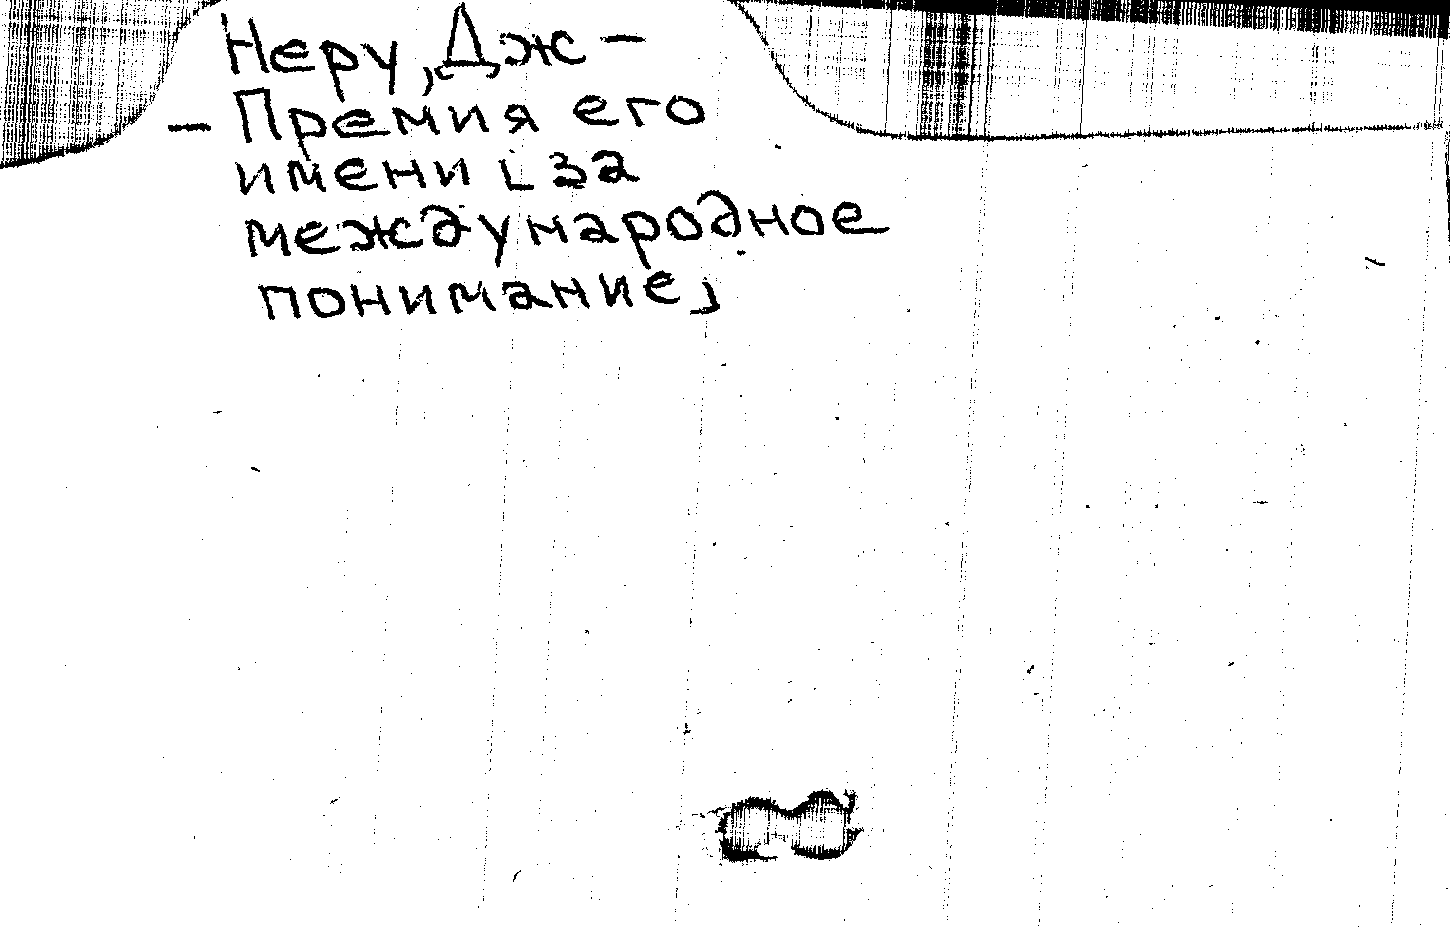 Неру, Дж –
– Премия его
имени [за
международное
понимание]